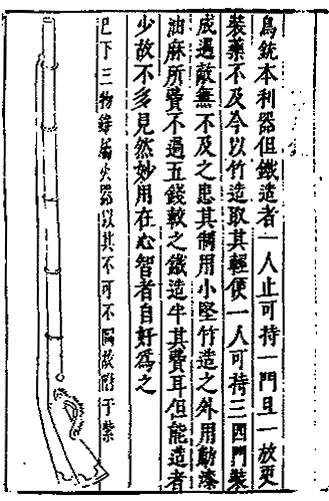 鳥銃本利器但鐵造者一人止可持一門且一放更
裝藥不及今以竹造取其輕便一人可持三四門裝
成遇敵無不及之患其制用小堅竹造之外用動漆
油麻所費不過五錢較之鐵造半其費耳但能造者
少故不多見然妙用在心智者自好為之
已下三物雖屬火器以其不可不備故附于紫